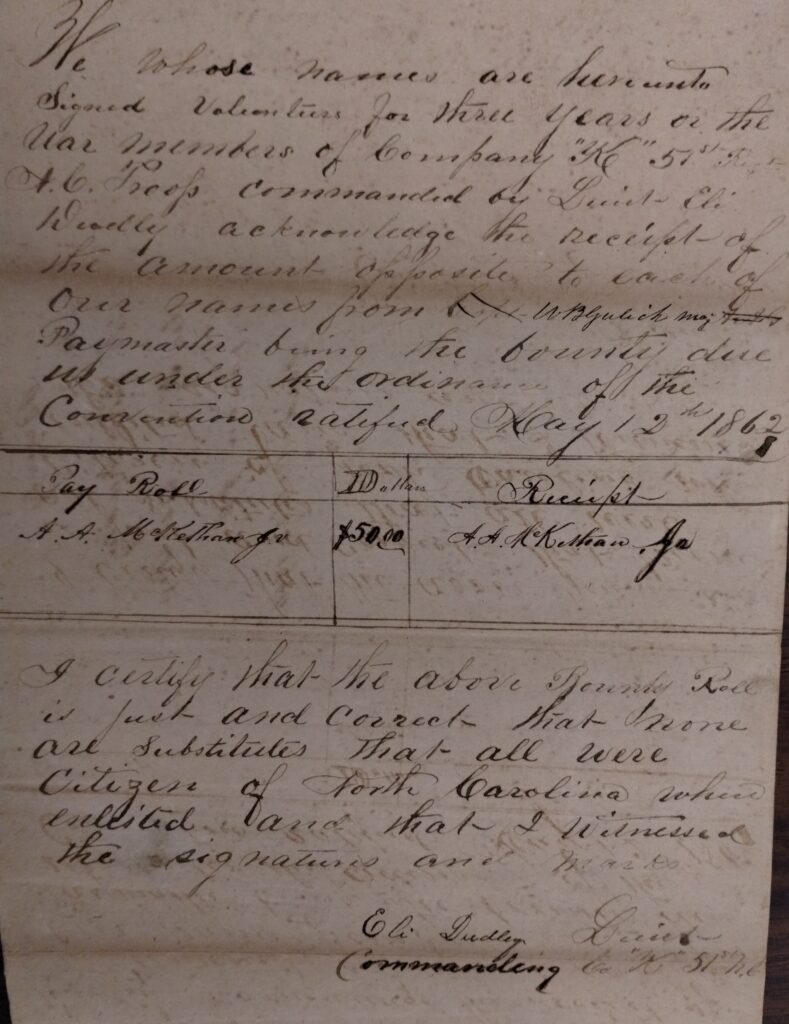 We whose names are hereunto
Signed Volunteers for three years or the
War members of Company "K" 51st Regt
N.C. Troops commanded by Lieut Eli
Dudly acknowledge the receipt of
the amount opposite to each of
our names from W B Gulick maj
Paymaster being the bounty due
us under the ordinance of the
Convention ratified May 12th 1862
Pay Roll Dollars Receipt
A. A. McKethan Jr $50.00 A. A. McKethan Jr
I certify that the above Bounty Roll
is just and correct that none
are substitutes that all were
Citizen of North Carolina when
enlisted and that I Witnessed
the signatures and marks
Eli Dudley Lieut
Commanding Co "K" 51st N.C